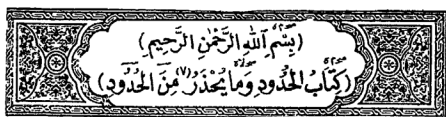 (بِسْمِ ٱللهِ الرَّحْمٰنِ الرَّحِيمِ)
(كِتَابُ الْحُدُودِ وَمَا يُحْذَرُ (٧) مِنَ الْحُدُودِ)